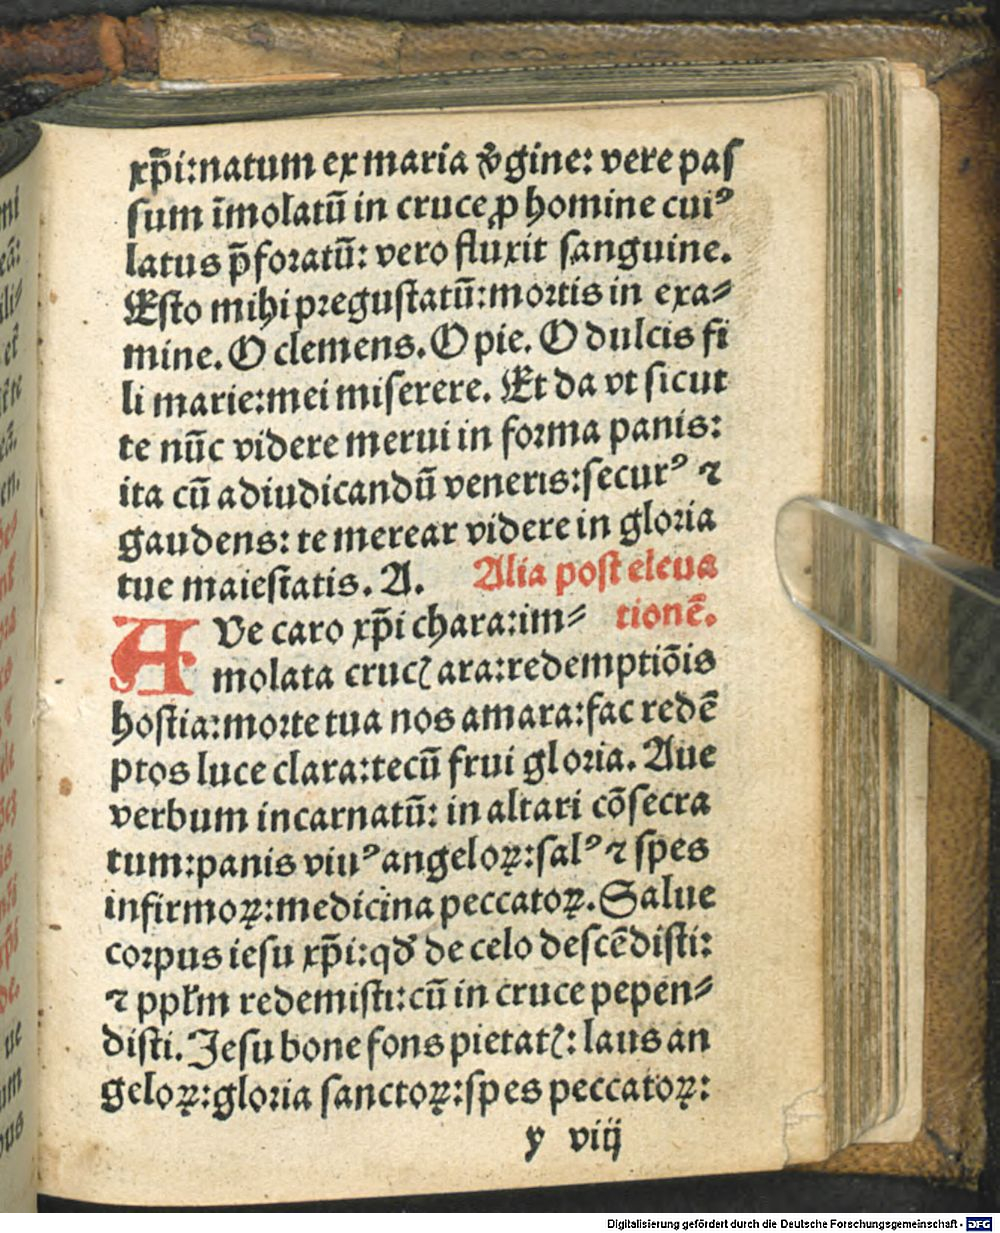 xp̄i:natum ex maria ꝟgine: vere paſ
ſum īmolatū in cruce ꝓ homine cuiꝰ
latus p̄foꝛatū: vero fluxit ſanguine.
Eſto mihi pꝛeguſtatū:moꝛtis in exa⸗
mine. O clemens. O pie. O dulcis fi
li marie:mei miſerere. Et da vt ſicut
te nūc videre merui in foꝛma panis:
ita cū adiudicandū veneris:ſecurꝰ ⁊
gaudens: te merear videre in gloꝛia
tue maieſtatis. A. Alia poſt eleua
AUe caro xp̄i chara:im⸗ tionē.
molata crucꝭ ara:redemptiōis
hoſtia:moꝛte tua nos amara:fac redē
ptos luce clara:tecū frui gloꝛia. Aue
verbum incarnatū: in altari cōſecra
tum:panis viuꝰ angeloꝝ:ſalꝰ ⁊ ſpes
infirmoꝝ:medicina peccatoꝝ. Salue
coꝛpus ieſu xp̄i:qď de celo deſcēdiſti:
⁊ ppl̄m redemiſti:cū in cruce pepen⸗
diſti. Jeſu bone fons pietatꝭ: laus an
geloꝝ:gloꝛia ſanctoꝝ:ſpes peccatoꝝ:
y viij
Digitalisierung gefördert durch die Deutsche Forschungsgemeinschaft - DFG